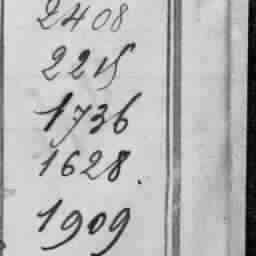 2408
2215
1736
1628.
1909